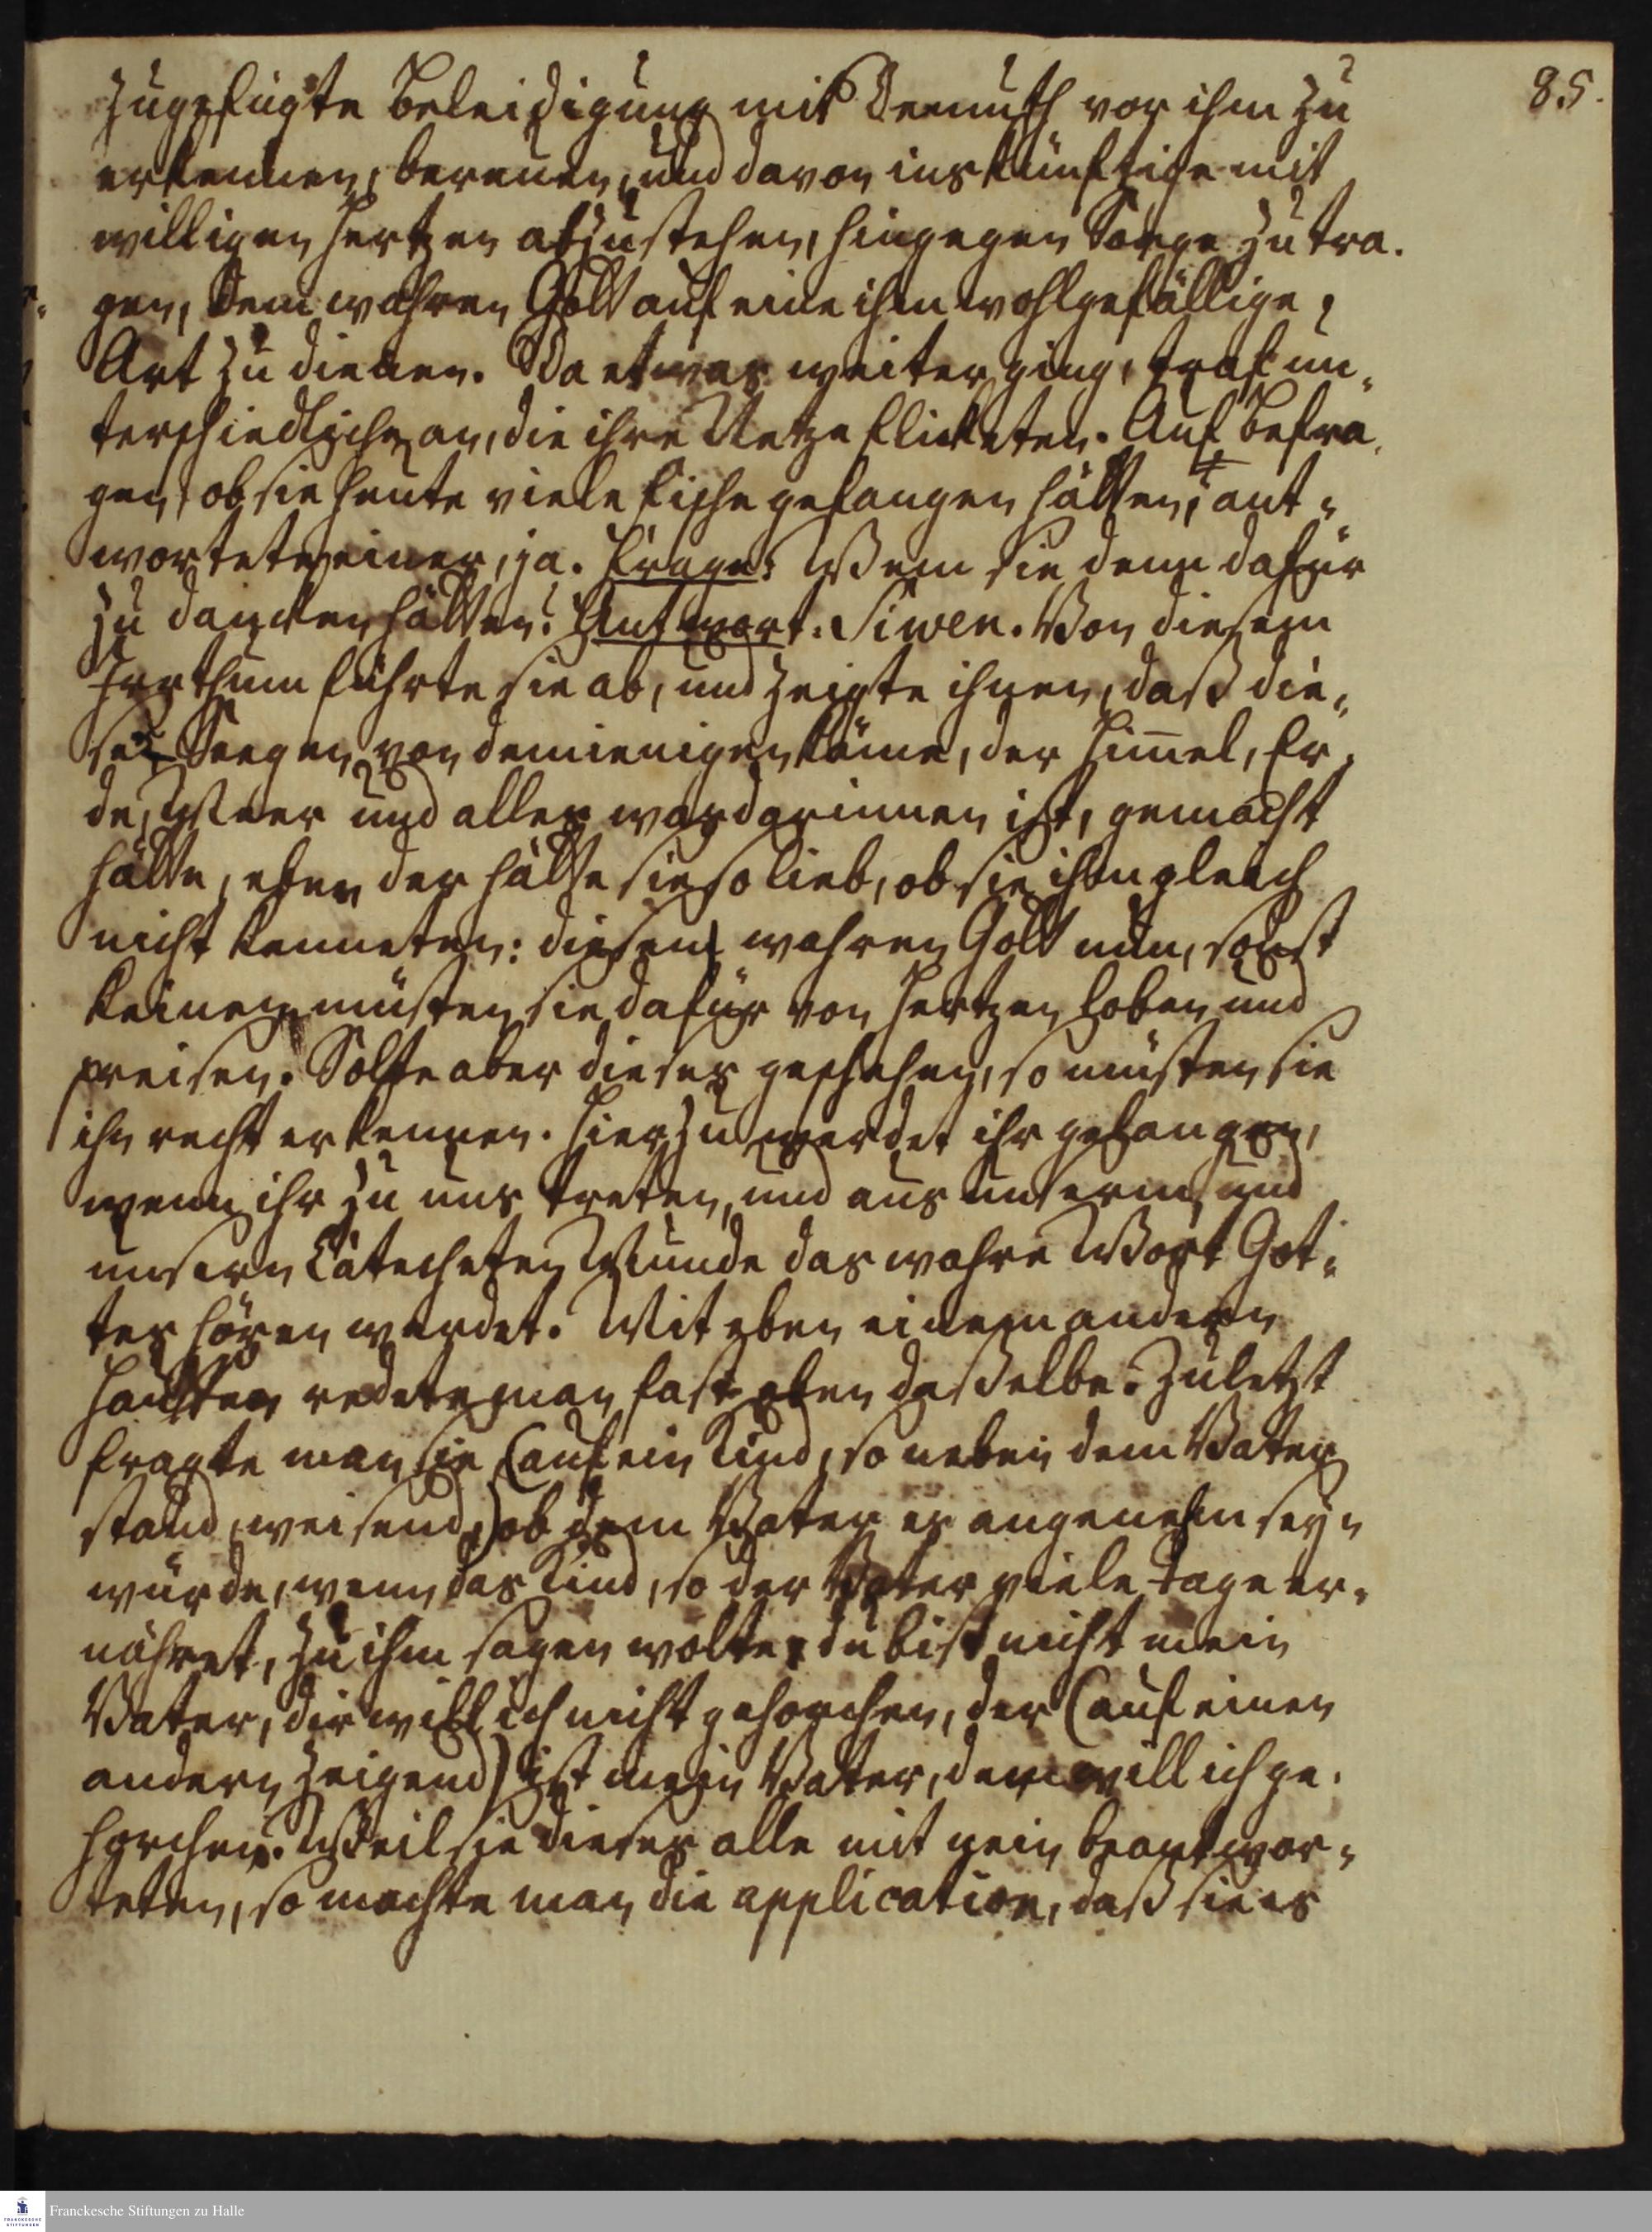 85.
zugefügte Beleidigung mit Demuth vor ihm zu
erkennen, bereuen, und davon inskünftige mit
willigen Hertzen abzustehen, hingegen Sorge zu tra-
gen, dem wahren Gott auf eine ihm wohlgefällige
Art zu dienen. Da etwas weiter ging, traf un-
terschiedliche an, die ihre Netze flickten. Auf Befra-
gen, ob sie heute viele Fische gefangen hätten, ant-
wortete einer, ja. Frage: Wem sie denn dafür
zu dancken hätten? Antwort. Siwen. Von diesem
Irrthum führte sie ab, und zeigte ihnen, daß die-
ser Seegen von demjenigen käme, der Him̄el, Er-
de, Meer und alles was darinnen ist, gemacht
hätte, eben der hätte sie so lieb, ob sie ihn gleich
nicht kenneten: diesem wahren Gott nun, sonst
keinen müsten sie dafür von Hertzen loben und
preisen. Solte aber dieses geschehen, so müsten sie
ihn recht erkennen. Hierzu werdet ihr gelangen,
wenn ihr zu uns treten, und aus unserm und
unsern Catecheten Munde das wahre Wort Got-
tes hören werdet. Mit eben einem andern
Hauffen redete man fast eben dasselbe. Zuletzt
fragte man sie (auf ein Kind, so neben dem Vater
stand, weisend,) ob dem Vater es angenehm seyn
würde, wenn das Kind, so der Vater viele Tage er-
nähret, zu ihm sagen wolte: du bist nicht mein
Vater, dir will ich nicht gehorchen, der (auf einen
andern zeigend) ist mein Vater, dem will ich ge-
horchen. Weil sie dieses alle mit nein beantwor-
teten, so machte man die application, daß sie es
Franckesche Stiftungen zu Halle